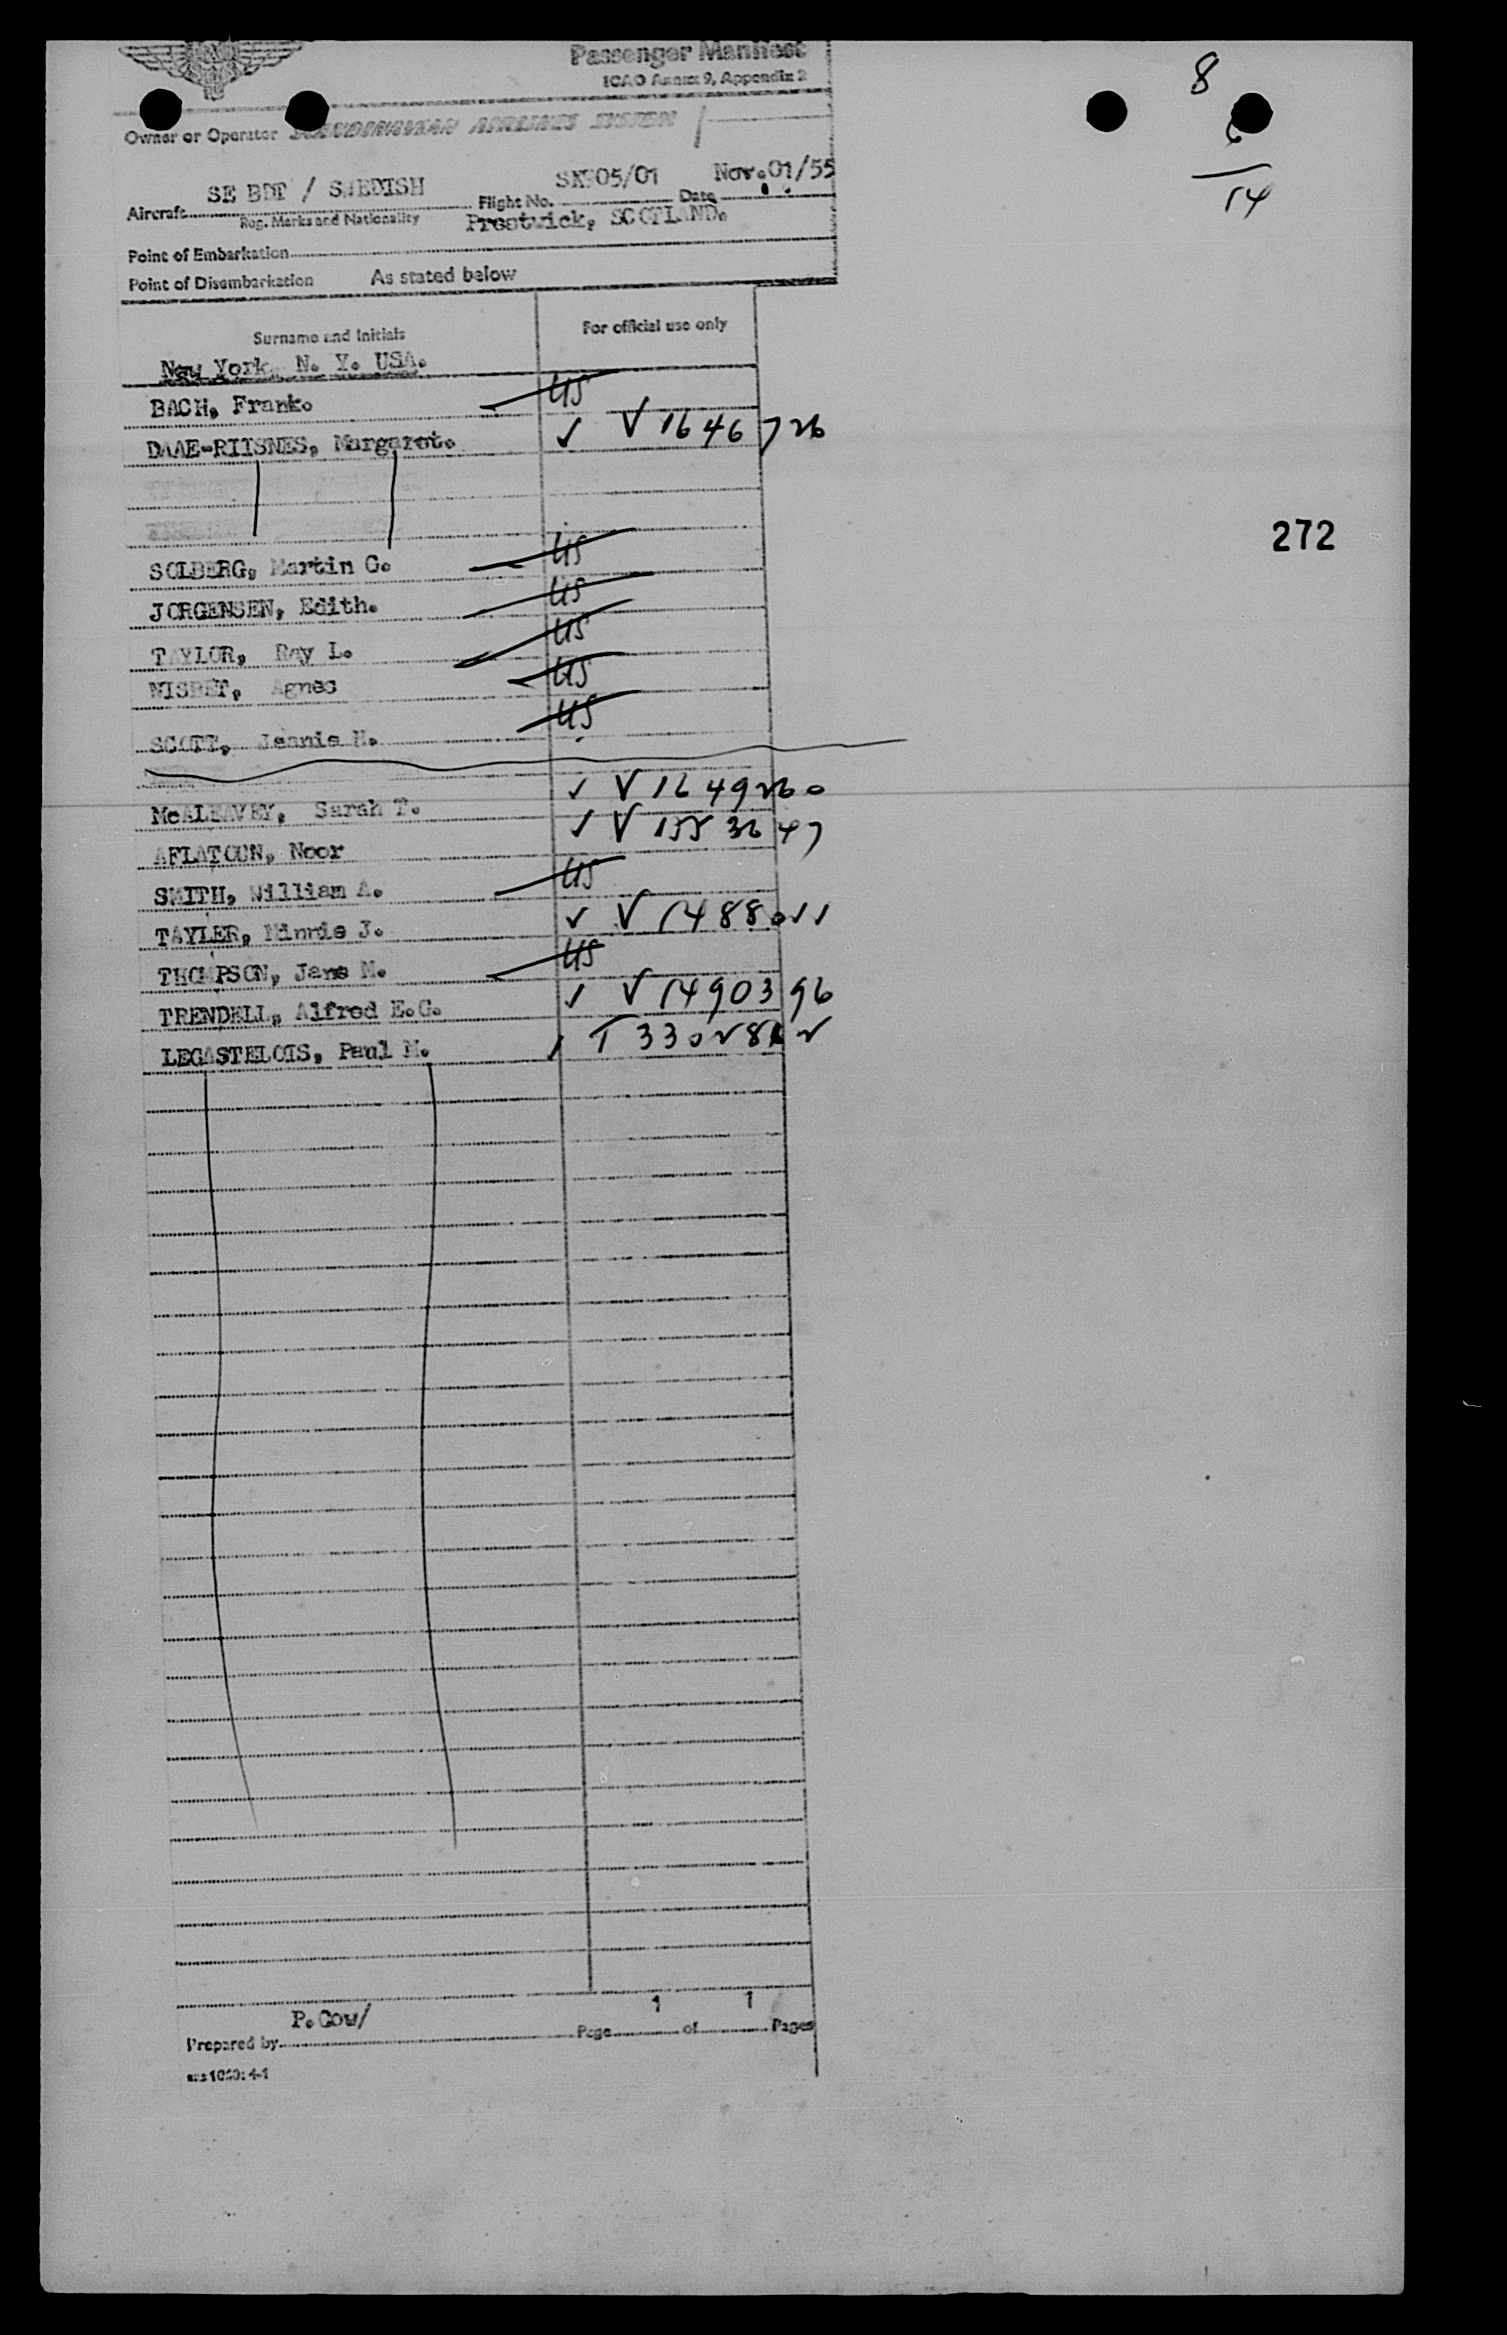 Passenger Manifest
ICAO Annex 9, Appendix 2
8
6
14
Owner or Operator SCANDINAVIAN AIRLINES SYSTEM
Aircraft SE BDT / SWEDISH Flight No. SK905/01 Date Nov.01/55
Reg. Marks and Nationality
Prestwick, SCOTLAND.
Point of Embarkation
Point of Disembarkation As stated below
Surname and Initials For official use only
New York, N. Y. USA.
BACH, Frank. US
DAAE-RIISNES, Margaret. V 1646726
272
SOLBERG, Martin G. US
JORGENSEN, Edith. US
TAYLOR, Ray L. US
NISBET, Agnes US
SCOTT, Jeannie M. US
McALEAVEY, Sarah T. V 1649260
AFLATOUN, Noor V
SMITH, William A. US
TAYLER, Minnie J. V 1488011
THOMPSON, Jane M. US
TRENDELL, Alfred E.G. V 1490396
LEGASTELOIS, Paul M. T
Prepared by P.Cow/ Page 1 of 1 Pages